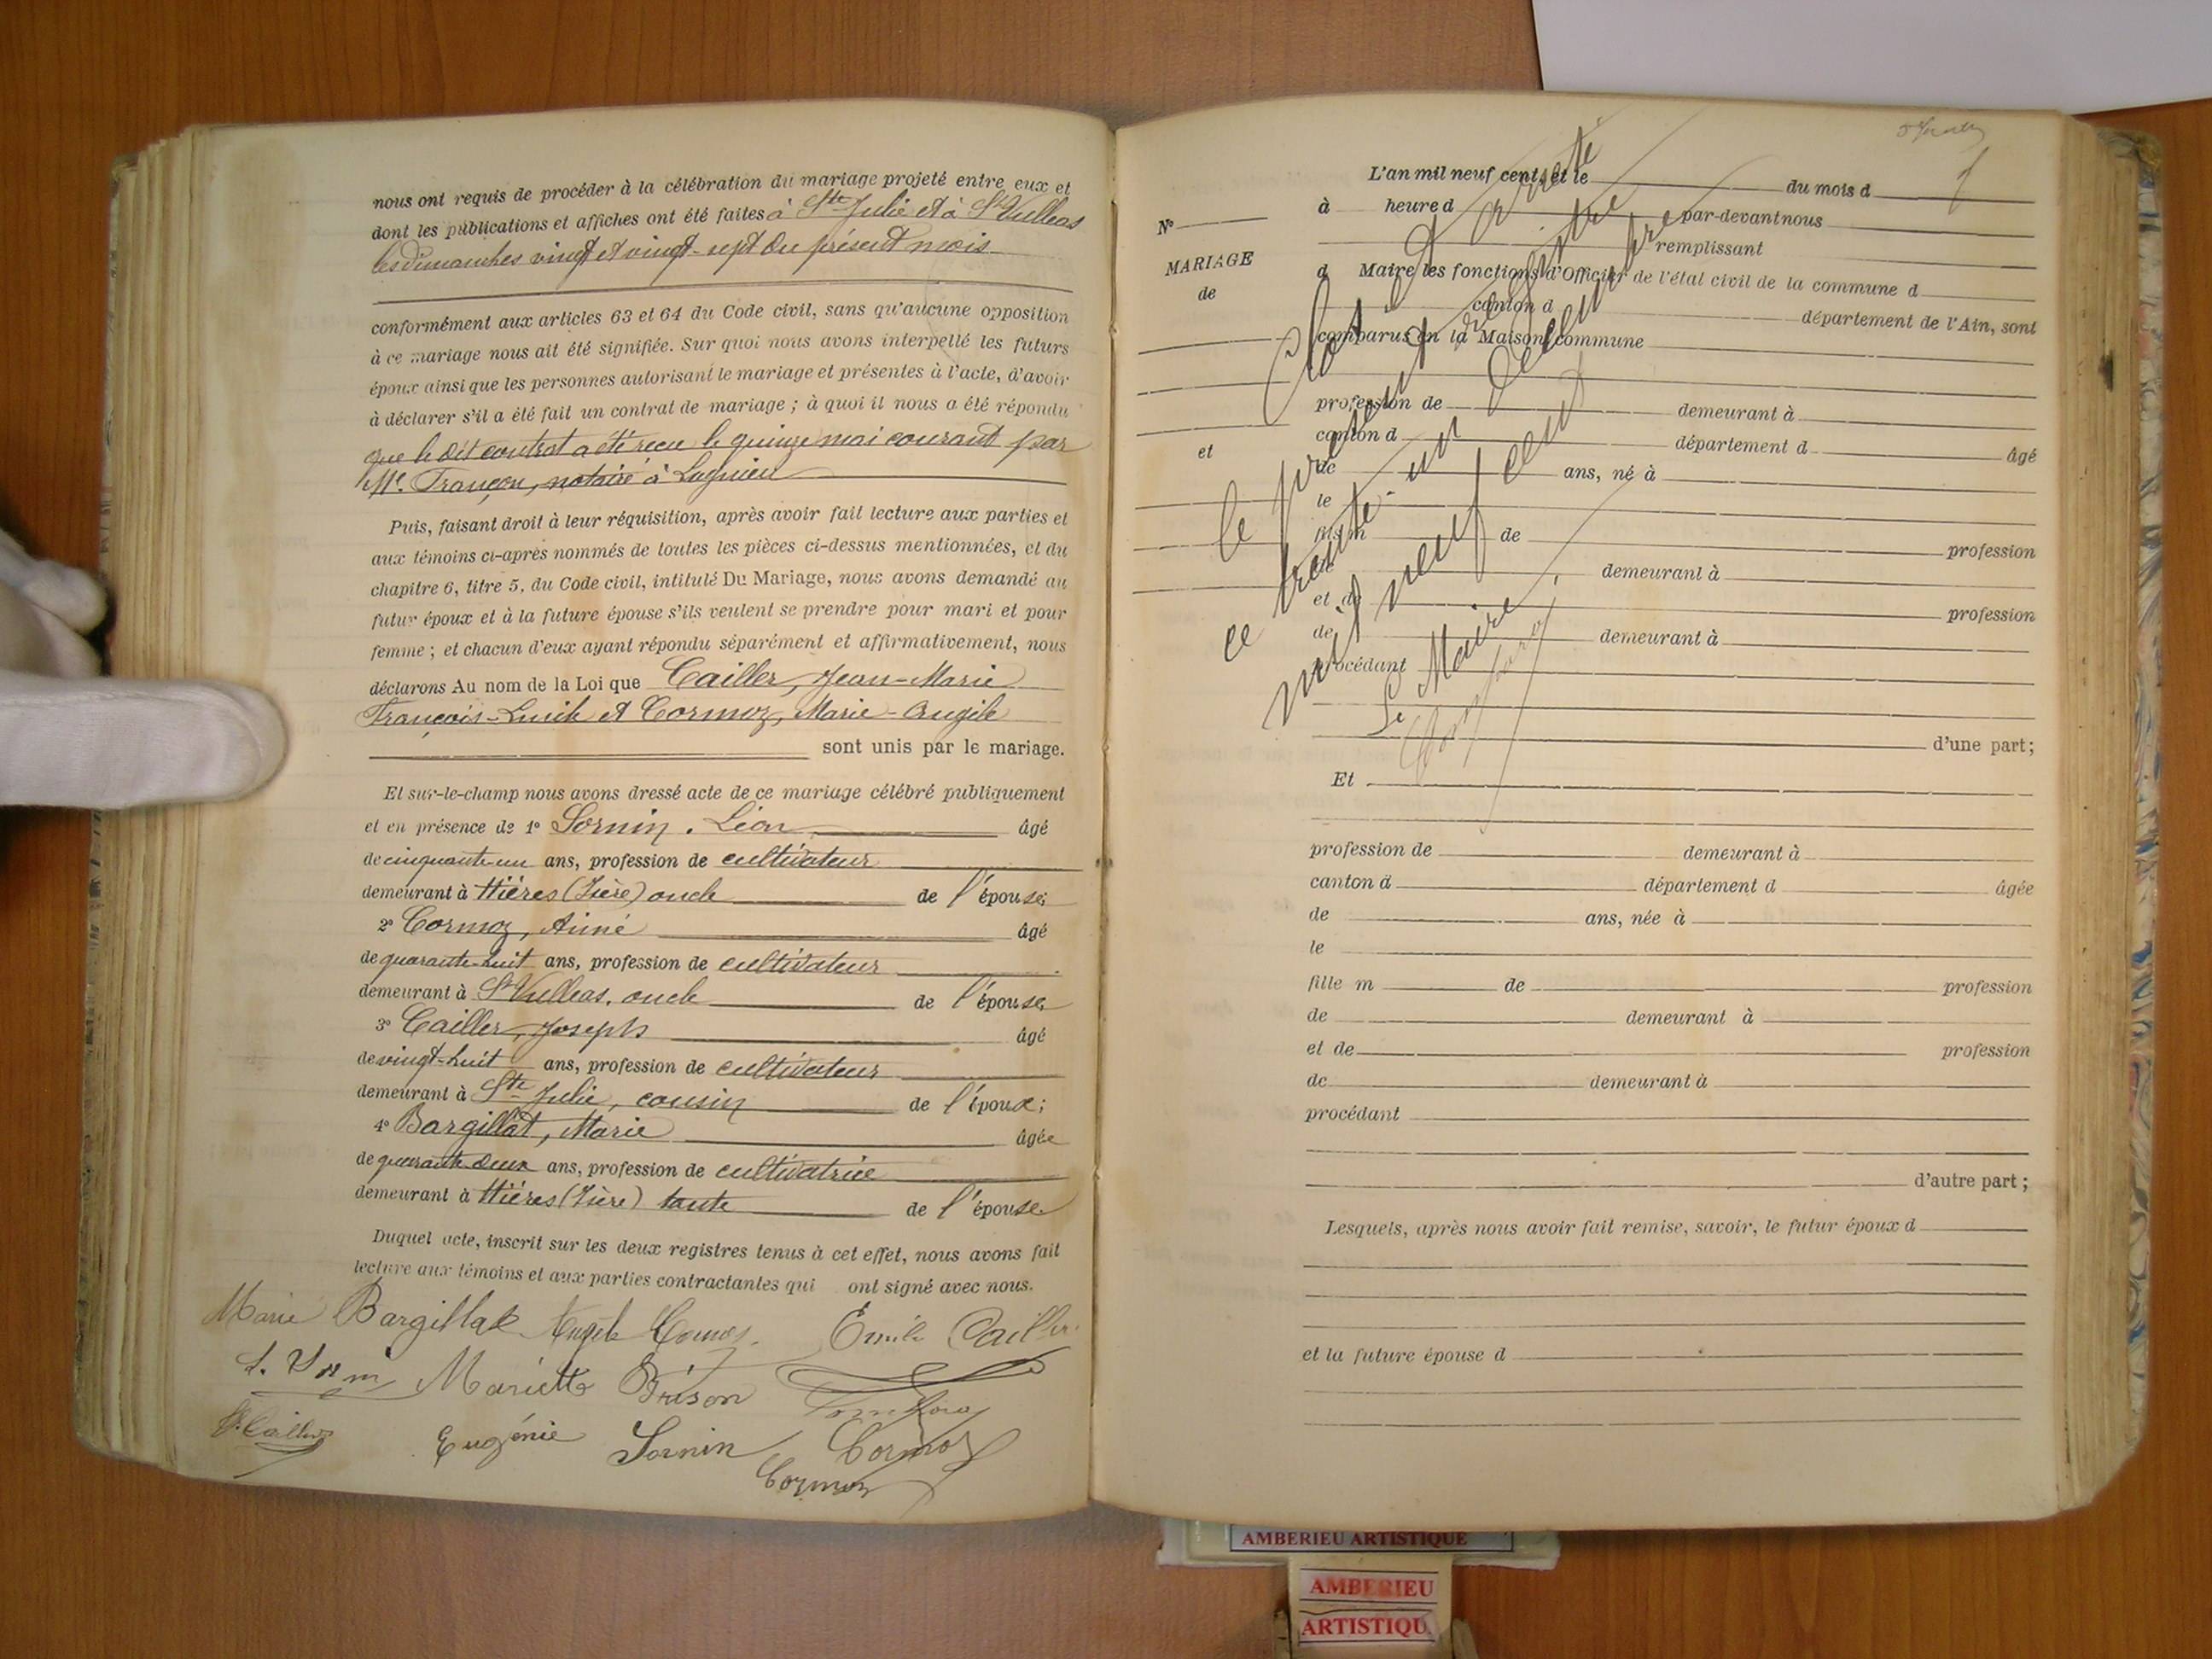 nous ont requis de procéder à la célébration du mariage projeté entre eux et
dont les publications et affiches ont été faites à Ste Julie et à St Vulbas
les dimanches vingt et vingt-sept du présent mois
conformément aux articles 63 et 64 du Code civil, sans qu'aucune opposition
à ce mariage nous ait été signifiée. Sur quoi nous avons interpellé les futurs
époux ainsi que les personnes autorisant le mariage et présentes à l'acte, d'avoir
à déclarer s'il a été fait un contrat de mariage ; à quoi il nous a été répondu
que le dit contrat a été recu le quinze mai courant par
Me. Françon, notaire à Lagnieu
Puis, faisant droit à leur réquisition, après avoir fait lecture aux parties et
aux témoins ci-après nommés de toutes les pièces ci-dessus mentionnées, et du
chapitre 6, titre 5, du Code civil, intitulé Du Mariage, nous avons demandé au
futur époux et à la future épouse s'ils veulent se prendre pour mari et pour
femme ; et chacun d'eux ayant répondu séparément et affirmativement, nous
déclarons Au nom de la Loi que Cailler, Jean-Marie
François-Emile et Cormoz, Marie-Angèle
sont unis par le mariage.
Et sur-le-champ nous avons dressé acte de ce mariage célébré publiquement
et en présence de 1° Sornin, Léon âgé
de cinquante-un ans, profession de cultivateur
demeurant à Hières (Isère) oncle de l'épouse;
2° Cormoz, Aimé âgé
de quarante-huit ans, profession de cultivateur
demeurant à St Vulbas, oncle de l'épouse;
3° Cailler, Joseph âgé
de vingt-huit ans, profession de cultivateur
demeurant à Ste Julie, cousin de l'époux;
4° Bargillat, Marie âgée
de quarante-deux ans, profession de cultivatrice
demeurant à Hières (Isère) tante de l'épouse
Duquel acte, inscrit sur les deux registres tenus à cet effet, nous avons fait
lecture aux témoins et aux parties contractantes qui ont signé avec nous.
Marie Bargillat Angèle Cormoz Emile Cailler
Mariette Brison
J. Cailler Eugénie Sornin Cormoz
Cormoz
L'an mil neuf cent et le du mois d
à heure d par-devant nous
N° remplissant
MARIAGE
de
d Maire les fonctions d'Officier de l'état civil de la commune d
canton d département de l'Ain, sont
comparus en la Maison commune
profession de demeurant à
canton d département d âgé
et
de ans, né à
le
fils m de profession
de demeurant à
et de profession
de demeurant à
procédant
d'une part;
Clos et arrêté
le présent registre
ce trente-un Décembre
mil neuf cent
Le Maire
Et
profession de demeurant à
canton d département d âgée
de ans, née à
le
fille m de profession
de demeurant à
et de profession
de demeurant à
procédant
d'autre part ;
Lesquels, après nous avoir fait remise, savoir, le futur époux d
et la future épouse d
AMBERIEU ARTISTIQUE
AMBERIEU
ARTISTIQU